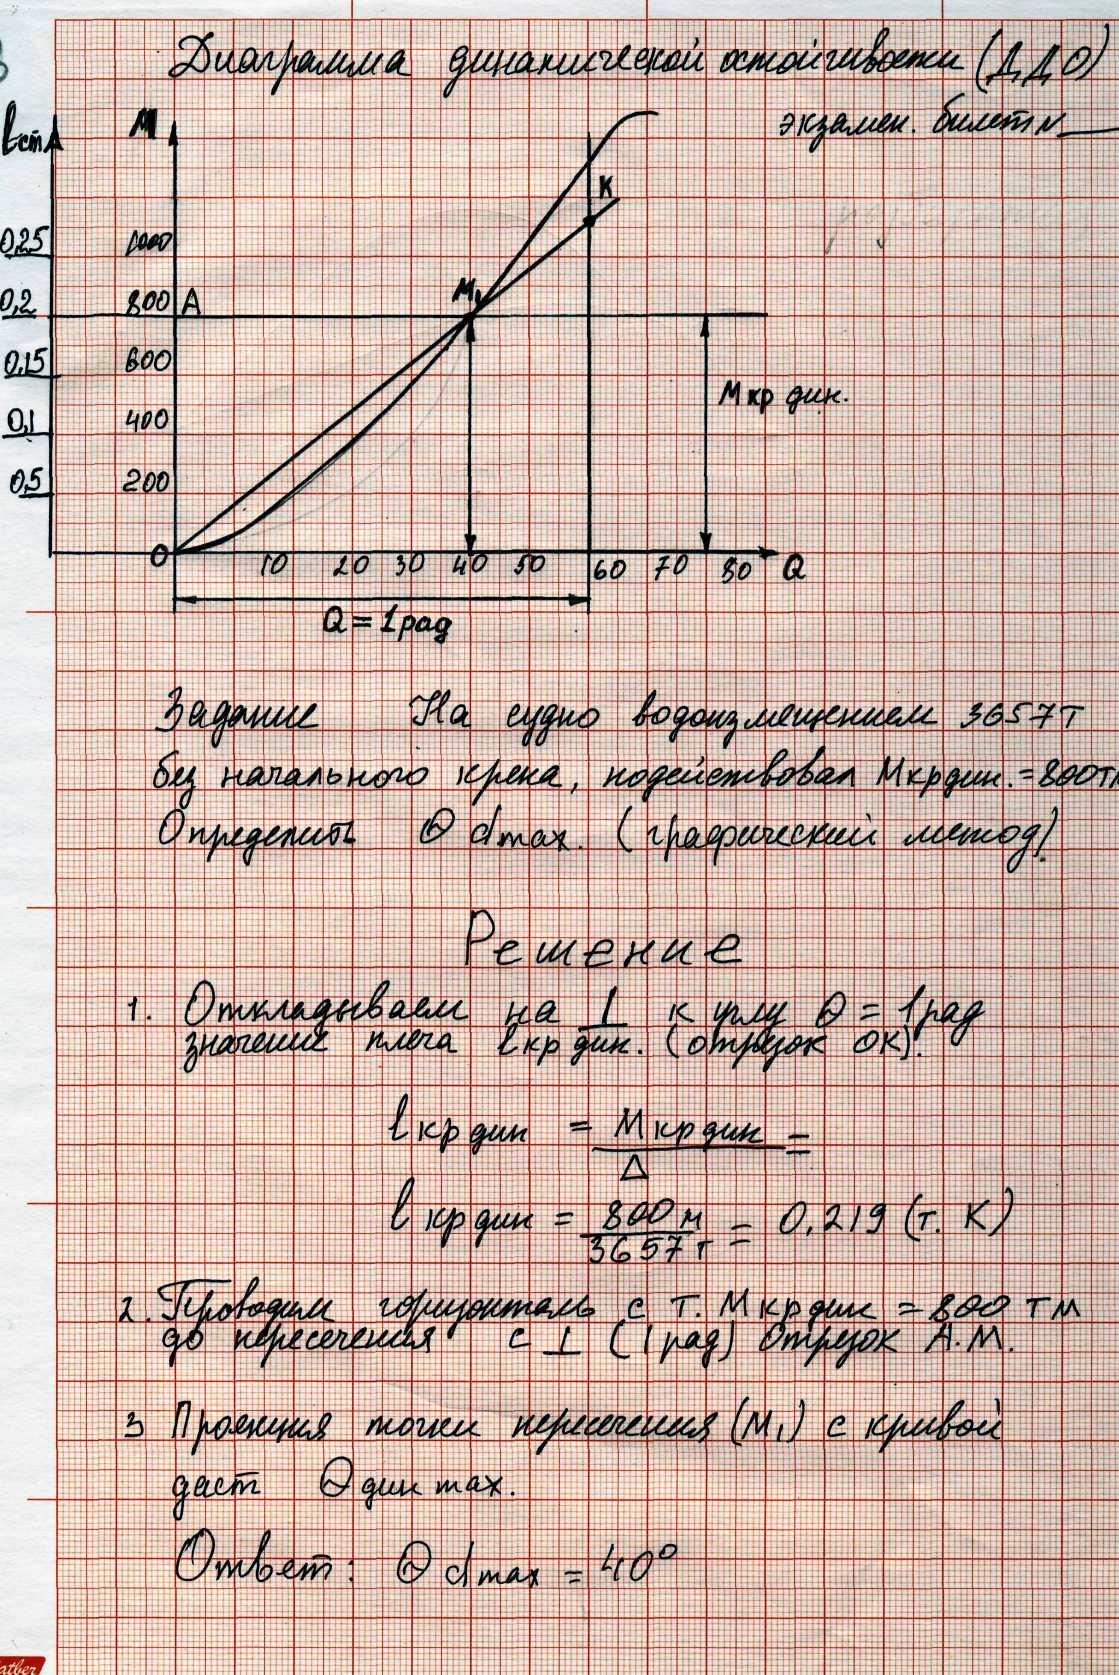 Диаграмма динамической остойчивости (ДДО)
экзамен. билет N
lст
M
0,25
1000
0,2
800
A
M1
K
0,15
600
M кр дин.
0,1
400
0,5
200
0
10 20 30 40 50 60 70 80 Q
Q = 1 рад
Задание На судно водоизмещением 3657т
без начального крена, подействовал Mкрдин. = 800т
Определить Θ dmax. (графический метод).
Решение
1. Откладываем на ⊥ к углу Θ = 1 рад
значение плеча lкр дин. (отрезок ОК).
l кр дин = M кр дин =
Δ
l кр дин = 800 м = 0,219 (т. К)
3657 т
2. Проводим горизонталь с т. M кр дин = 800 тм
до пересечения с ⊥ (1 рад) отрезок А.М.
3 Проекция точки пересечения (M1) с кривой
даст Θ дин max.
Ответ: Θ dmax = 40°